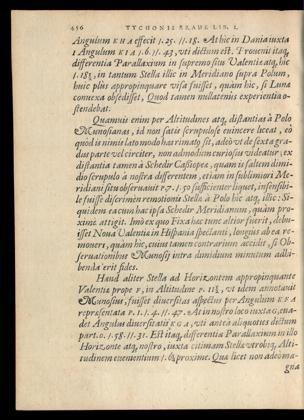 456 TYCHONIS BRAHE LIB. I.
Angulum KHA effecit 1. 25. 11. 18. At hic in Dania iuxta
1 Angulum KIA 1. 6. 11. 43, vti dictum est. Prouenit itaq,
differentia Parallaxium in supremo situ Valentiæ atq, hic
1. 18½, in tantum Stella illic in Meridiano supra Polum,
huic plus appropinquare visa fuisset, quàm hic, si Luna
conuexa obsedisset, Quod tamen nullatenus experientia o-
stendebat.
Quamuis enim per Altitudines atq, distantias à Polo
Munosianas, id non satis scrupulose euincere liceat, eò
quòd is nimis lato modo has rimato sit, adeò vt de sexta gra-
dus parte vel circiter, non admodum curiosus videatur; ex
distantia tamen à Schedir Cassiopeæ, quam is saltem dimi-
dio scrupulo à nostra differentem, etiam in sublimiori Me-
ridiani situ obseruauit P. 7. 1. 50 sufficienter liquet, insensibi-
le fuisse discrimen remotionis Stellæ à Polo hic atq, illic: Si-
quidem ea cum hac ipsa Schedir Meridianum, quàm pro-
ximè attigit. Imò ex quo Fixa hæc tunc altior fuerit, debu-
isset Noua Valentiæ in Hispania spectanti, longius ab ea re-
moueri, quàm hic, cuius tamen contrarium accidit, si Ob-
seruationibus Munosij intra dimidium minutum adhi-
benda erit fides.
Haud aliter Stella ad Horizontem appropinquante
Valentiæ prope F, in Altitudine P. 11½, vt idem annotauit
Munosius, fuisset diuersitas aspectus per Angulum KFA
repræsentata P. 1. 1. 4. 11. 47. At in nostro loco iuxta G, eua-
det Angulus diuersitatis KGA, vti antea aliquoties dictum
part. 0. 1. 58. 11. 31. Est itaq, differentia Parallaxium in isto
Horizonte atq, nostro, iuxta citimam Stellæ vtrobiq, Alti-
tudinem euenientium 1. 6¼ proximè. Qua licet non adeò ma-
gna